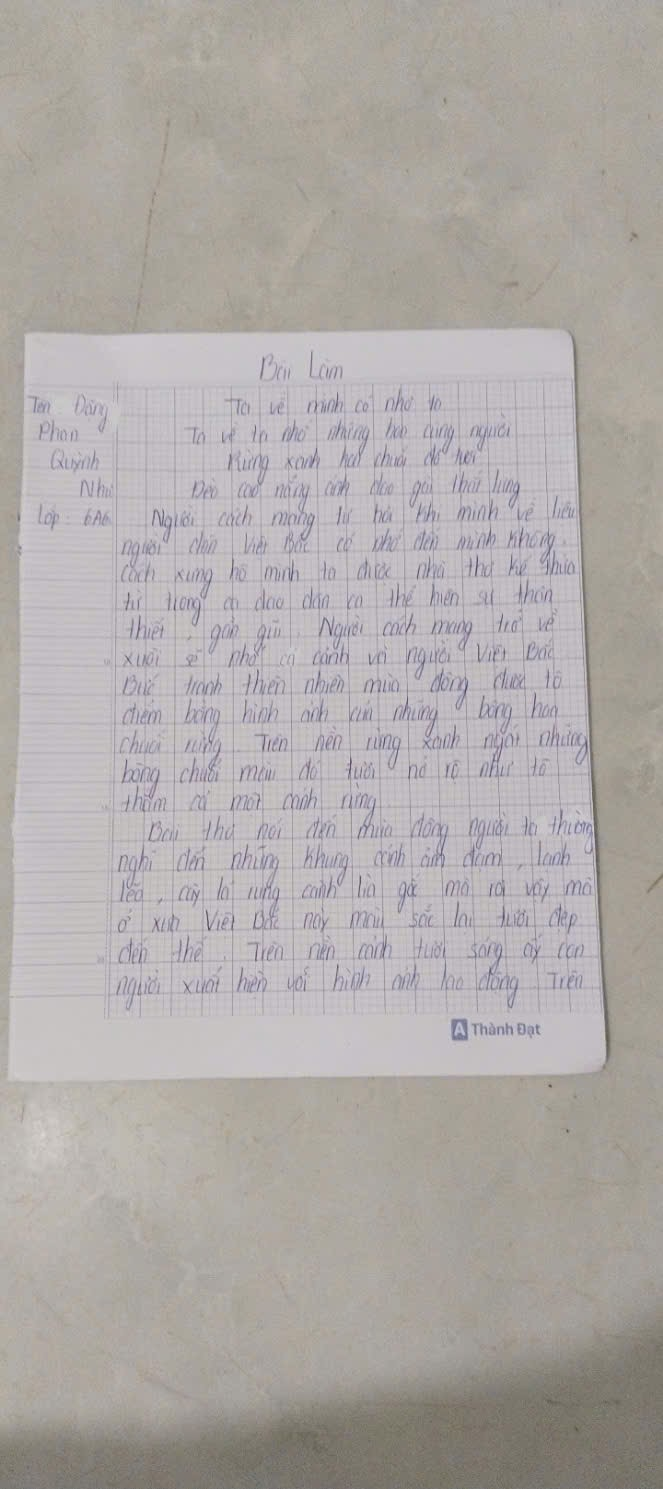 Bài Làm
Tên: Đặng
Phan
Quỳnh
Như
Lớp: 6A6
Ta về mình có nhớ ta
Ta về ta nhớ những hoa cùng người
Rừng xanh hoa chuối đỏ tươi
Đèo cao nắng ánh dao gài thắt lưng
Người cách mạng tự hỏi khi mình về liệu
người dân Việt Bắc có nhớ đến mình không.
Cách xưng hô mình ta được nhà thơ kế thừa
từ trong ca dao dân ca thể hiện sự thân
thiết, gần gũi. Người cách mạng trở về
xuôi sẽ nhớ cả cảnh và người Việt Bắc
Bức tranh thiên nhiên mùa đông được tô
điểm bằng hình ảnh của những bông hoa
chuối rừng. Trên nền rừng xanh ngát những
bông chuối màu đỏ tươi nở rộ như tô
thắm cả một cánh rừng
Bài thơ nói đến mùa đông người ta thường
nghĩ đến những khung cảnh ảm đạm, lạnh
lẽo, cây lá rụng cành lìa gốc mà rồi vậy mà
ở xứ Việt Bắc này màu sắc lại tươi đẹp
đến thế. Trên nền cảnh tươi sáng ấy con
người xuất hiện với hình ảnh lao động. Trên
A Thành Đạt